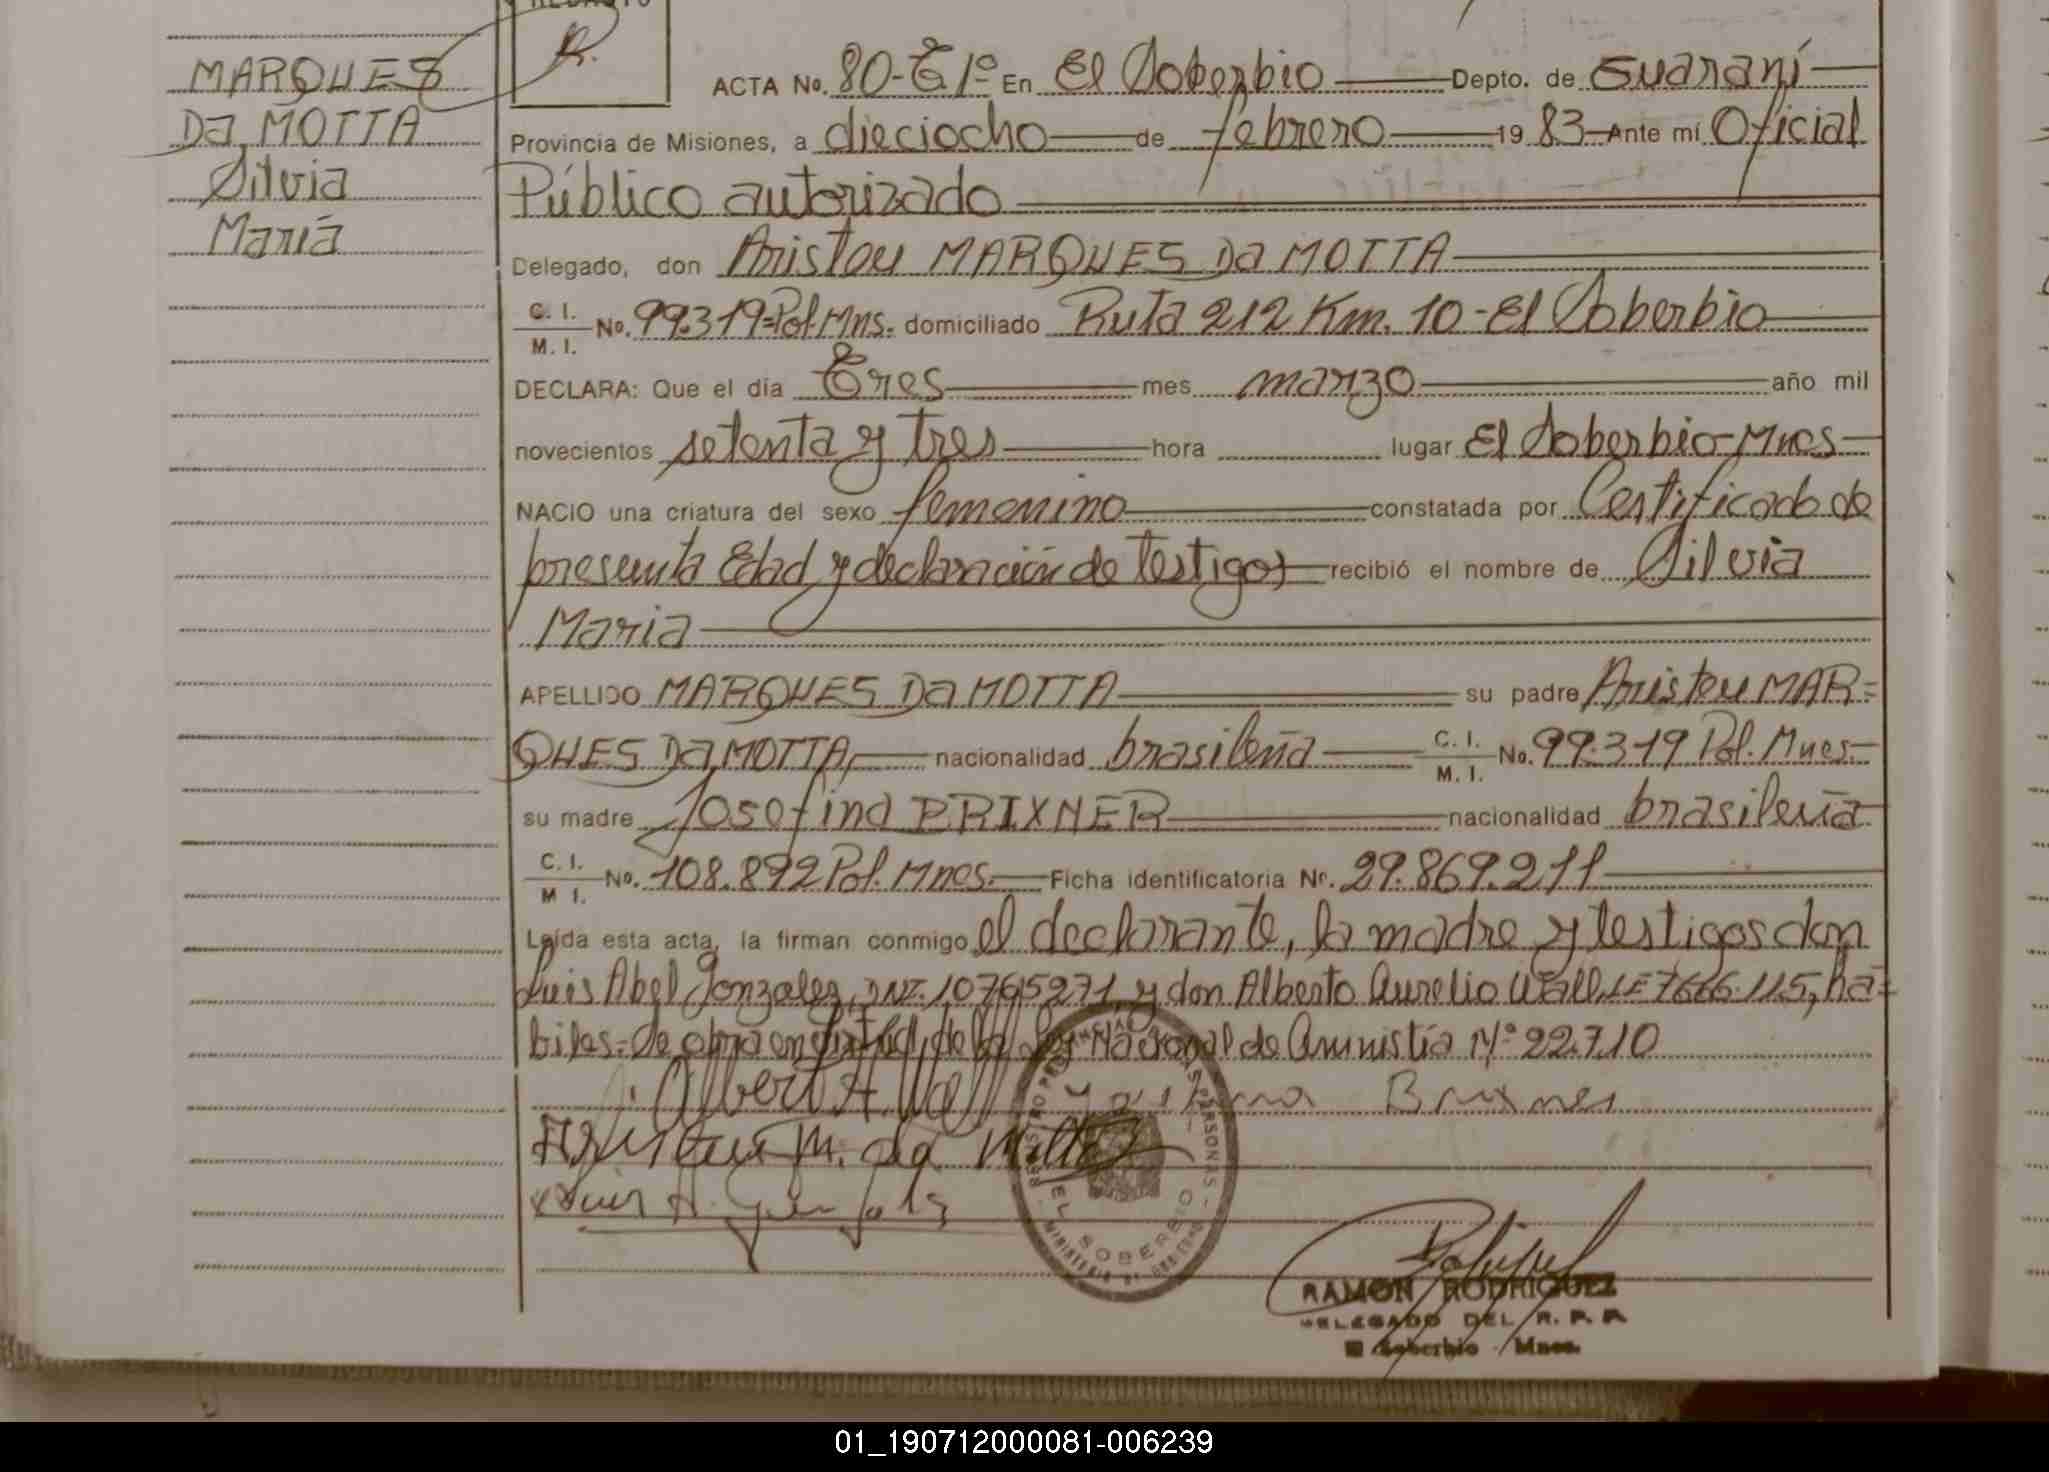 MARQUES
Da MOTTA
Silvia
María
REDACTO
ACTA No. 80-T 1º En El Soberbio Depto. de Guaraní
Provincia de Misiones, a dieciocho de febrero 19 83 Ante mí Oficial
Público autorizado
Delegado, don Aristeu MARQUES Da MOTTA
C. I.
M. I.
No. 99.319=Pol. Mns. domiciliado Ruta 212 Km. 10-El Soberbio
DECLARA: Que el día Tres mes marzo año mil
novecientos setenta y tres hora lugar El Soberbio-Mnes
NACIO una criatura del sexo femenino constatada por Certificado de
presunta Edad y declaración de Testigos recibió el nombre de Silvia
Maria
APELLIDO MARQUES Da MOTTA su padre Aristeu MAR=
QUES Da MOTTA, nacionalidad brasileña C. I. M. I. No. 99.319 Pol. Mnes.
su madre Josefina BRIXNER nacionalidad brasileña
C. I.
M I.
No. 108.892 Pol. Mnes. Ficha identificatoria Nº. 29.869.211
Leída esta acta, la firman conmigo el declarante, la madre y testigos don
Luis Abel Gonzalez, DNI. 10765271 y don Alberto Aurelio Wall LE 7666.115, há=
biles= de obra en virtud de la Ley Nacional de Amnistía Nº 22.710
Albert A. Wall Brixner
Aristeu M. da Motta
Luis A. Gonzalez
REGISTRO PROVINCIAL DE LAS PERSONAS
EL SOBERBIO
MINISTERIO DE GOBIERNO
RAMON RODRIGUEZ
DELEGADO DEL R. P. P.
El Soberbio Mnes.
01_190712000081-006239